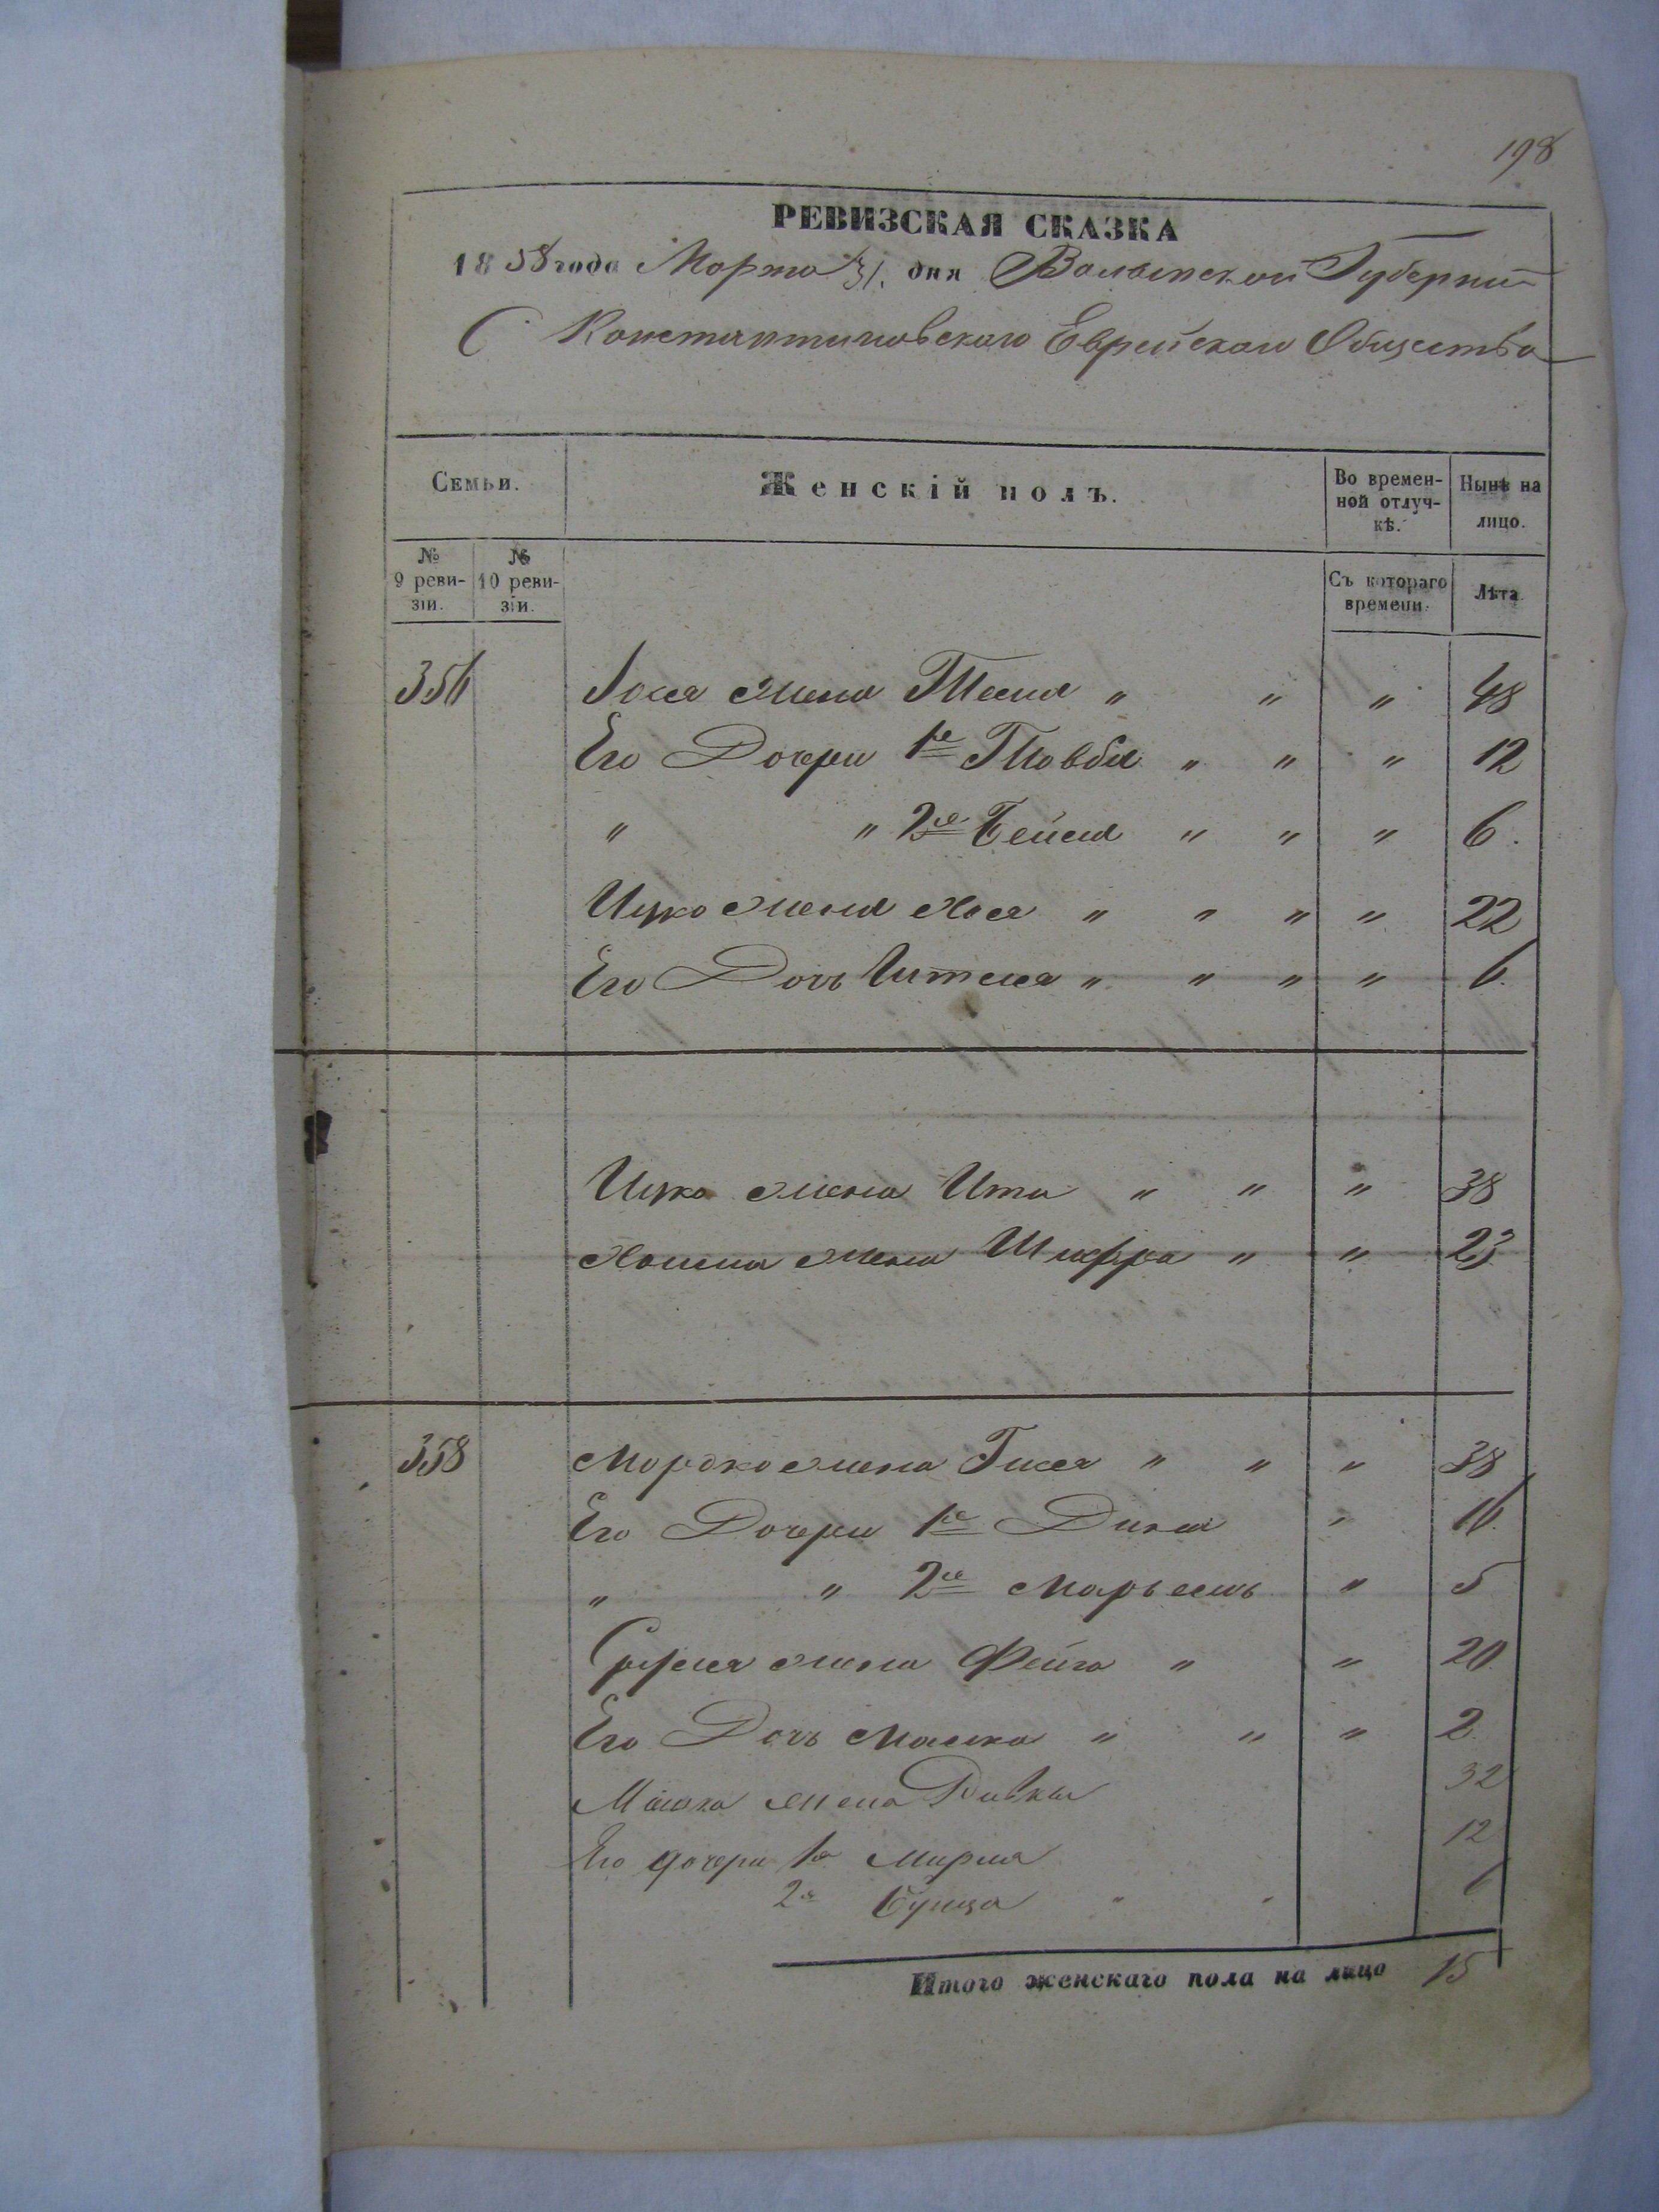 198
РЕВИЗСКАЯ СКАЗКА
1858 года Марта 31. дня Волынской Губернии
С Константиновскаго Еврейскаго Общества
Семьи. Женскій полъ. Во времен-ной отлуч-кѣ. Нынѣ на лицо.
№ 9 реви-зіи. № 10 реви-зіи. Съ котораго времени. Лѣта
356 Іося жена Тема " " " 48
Его Дочери 1я Товба " " " 12
" " 2я Бейла " " " 6.
Ицко жена Хася " " " " 22
Его Дочь " " " " 6.
Ицко жена Ита " " " 38
жена Шифра " " 23
358 Мордко жена Гися " " " 38
Его Дочери 1я Дина " 16.
" " 2я Марьемъ " 5
Сруля жена Фейга " " 20.
Его Дочь Маска " " " 2.
Машка жена Ривка 32
Его дочери 1я Мирля 12
2я Бунца " " 6
Итого женскаго пола на лицо 15